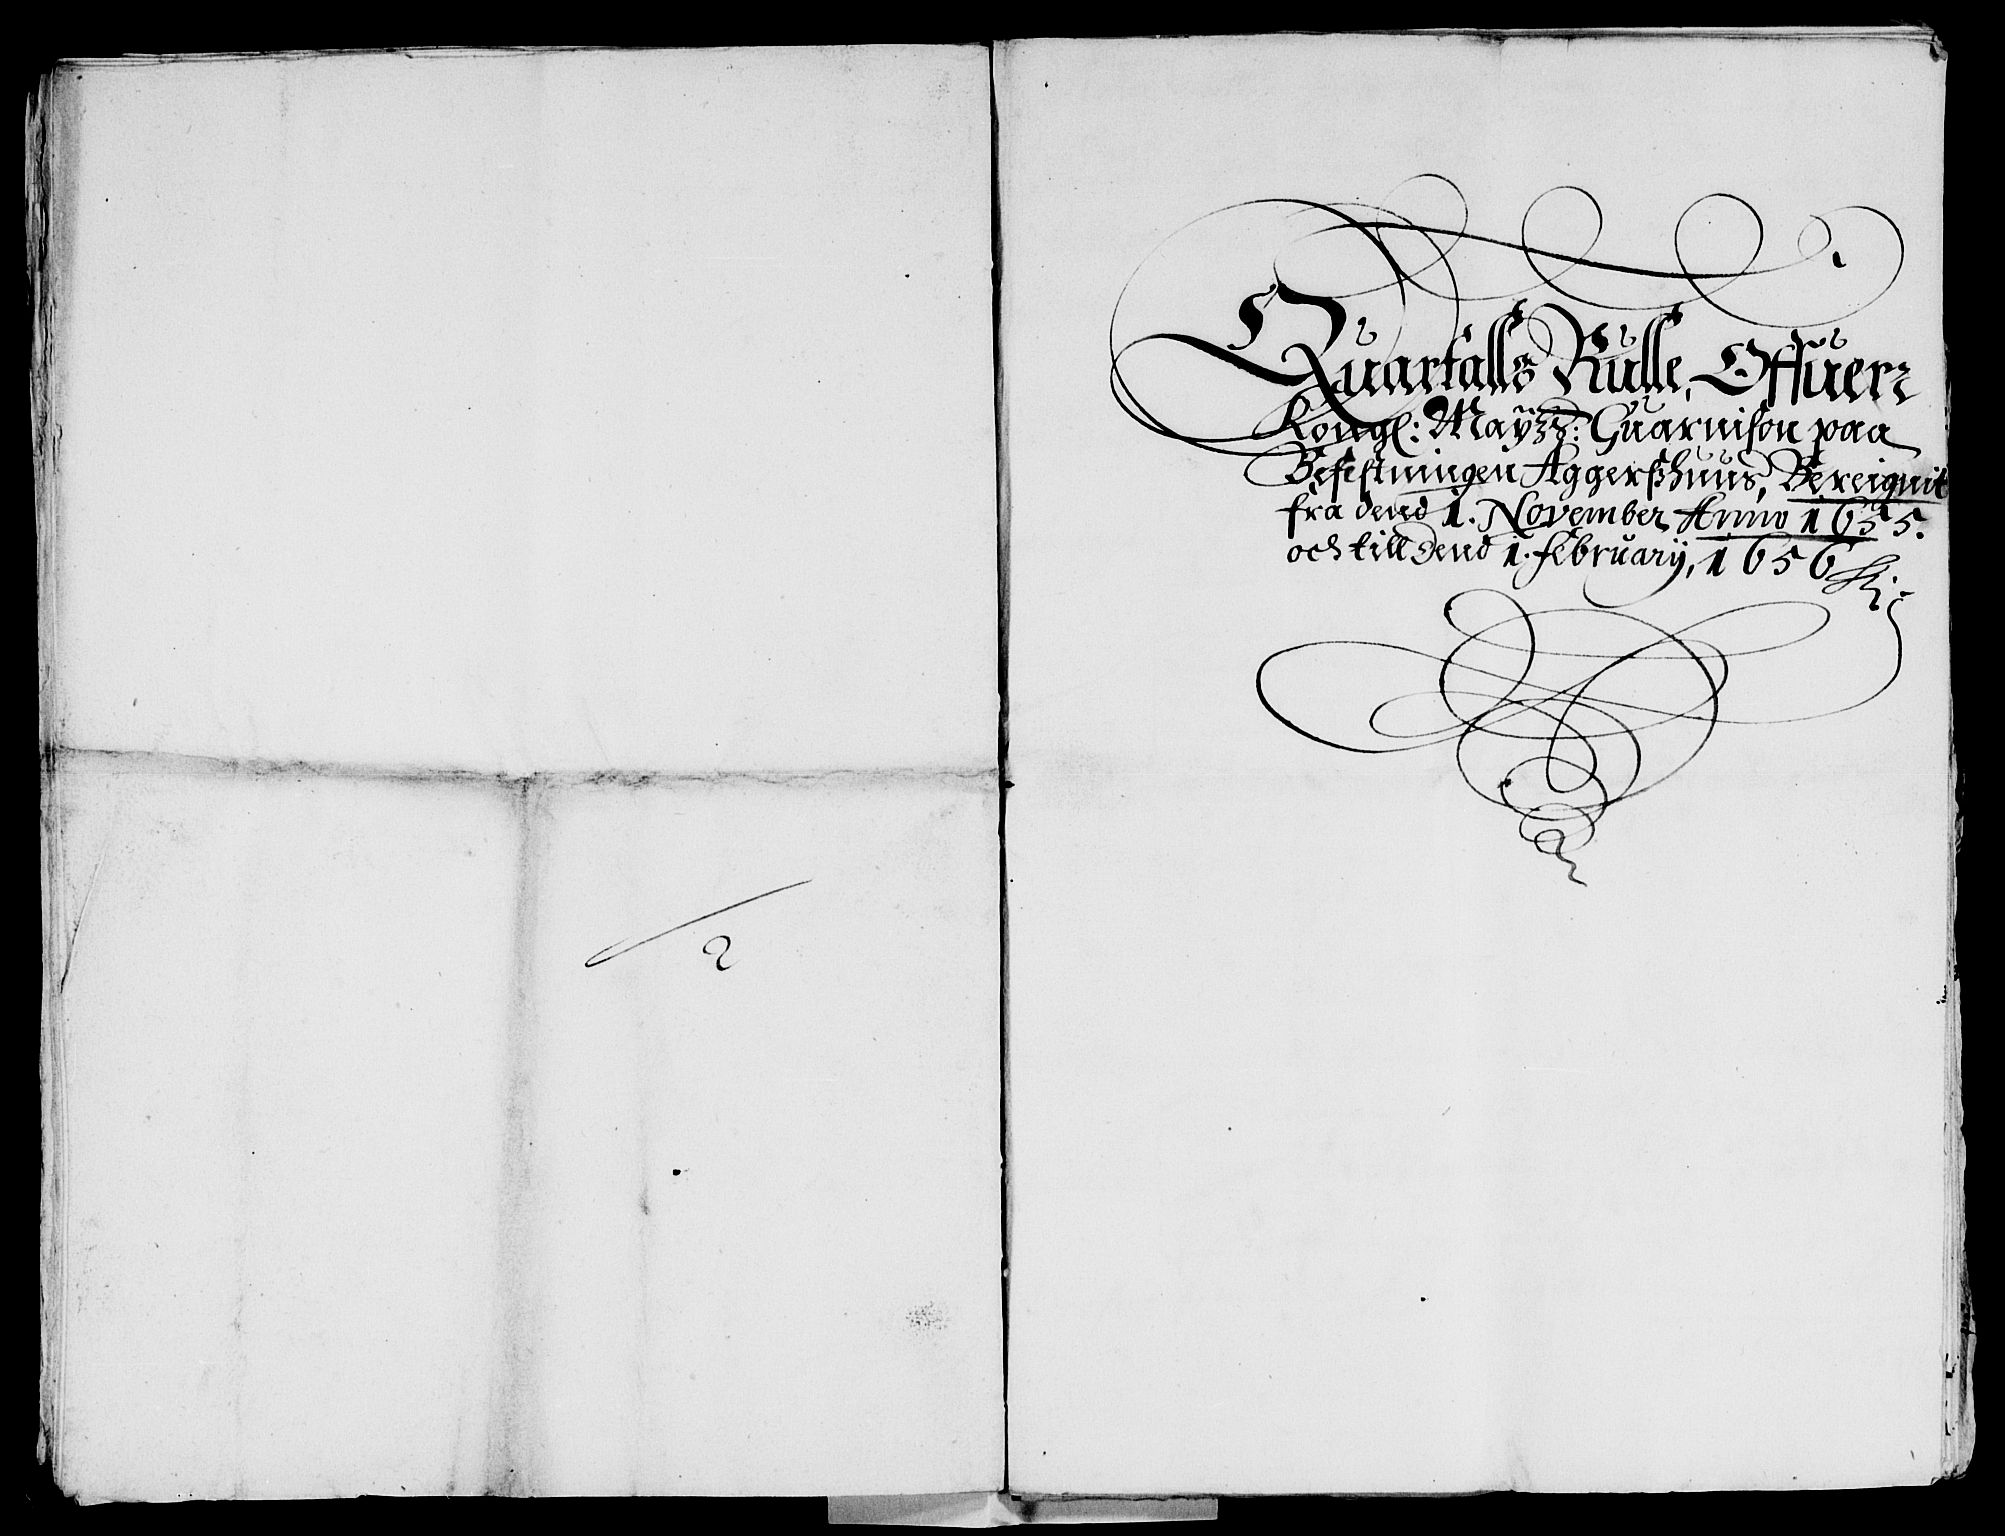 2
Quartalls Rulle, Offuer
Kongl: Mayzz: Guarnison paa
Befestningen Aggerßhuus, Bereignit
fra dend 1. November Anno 1655.
och till dend 1. february, 1656